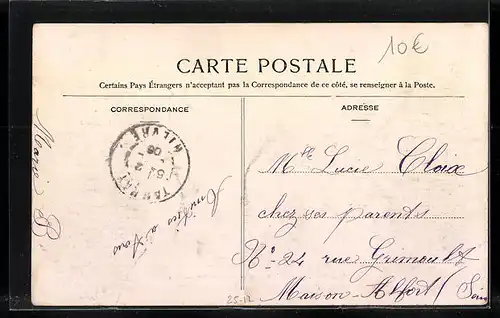 10€
CARTE POSTALE
Certains Pays Étrangers n'acceptant pas la Correspondance de ce côté, se renseigner à la Poste.
CORRESPONDANCE
Amitiés à tous
Marie
ADRESSE
Mlle Lucie Cloix
chez ses parents
N° 24 rue Grimoult
Maison-Alfort (Seine
25-12